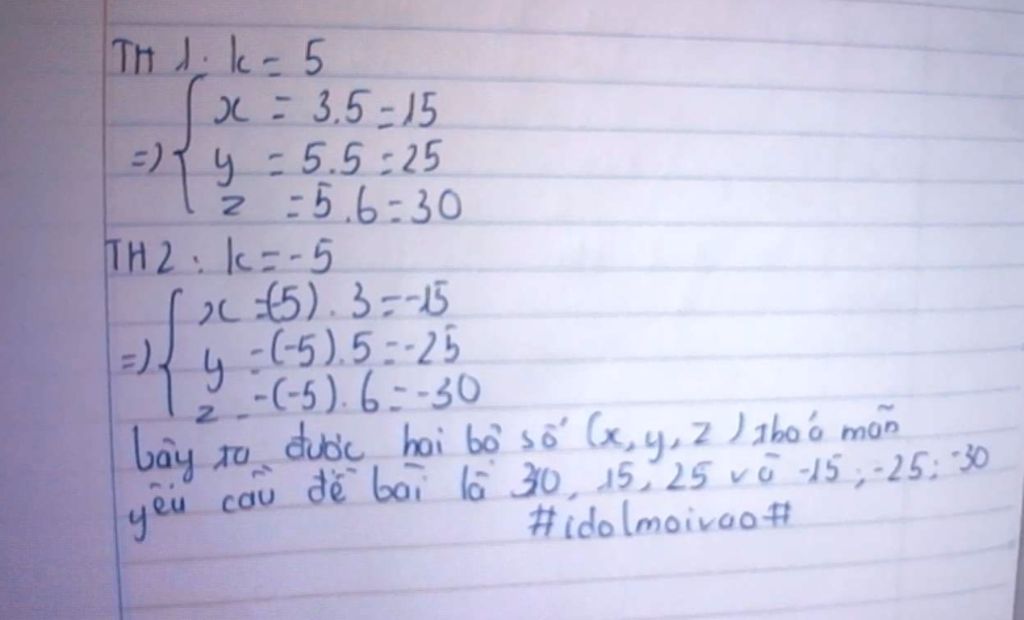 TH 1. k = 5
x = 3.5 = 15
=> { y = 5.5 = 25
z = 5.6 = 30
TH2: k = -5
x = (-5). 3 = -15
=> { y = (-5). 5 = -25
z = (-5). 6 = -30
bậy ta được hai bộ số (x, y, z) thoả mãn
yêu cầu đề bài là 30, 15, 25 và -15; -25; -30
#idolmoivao#